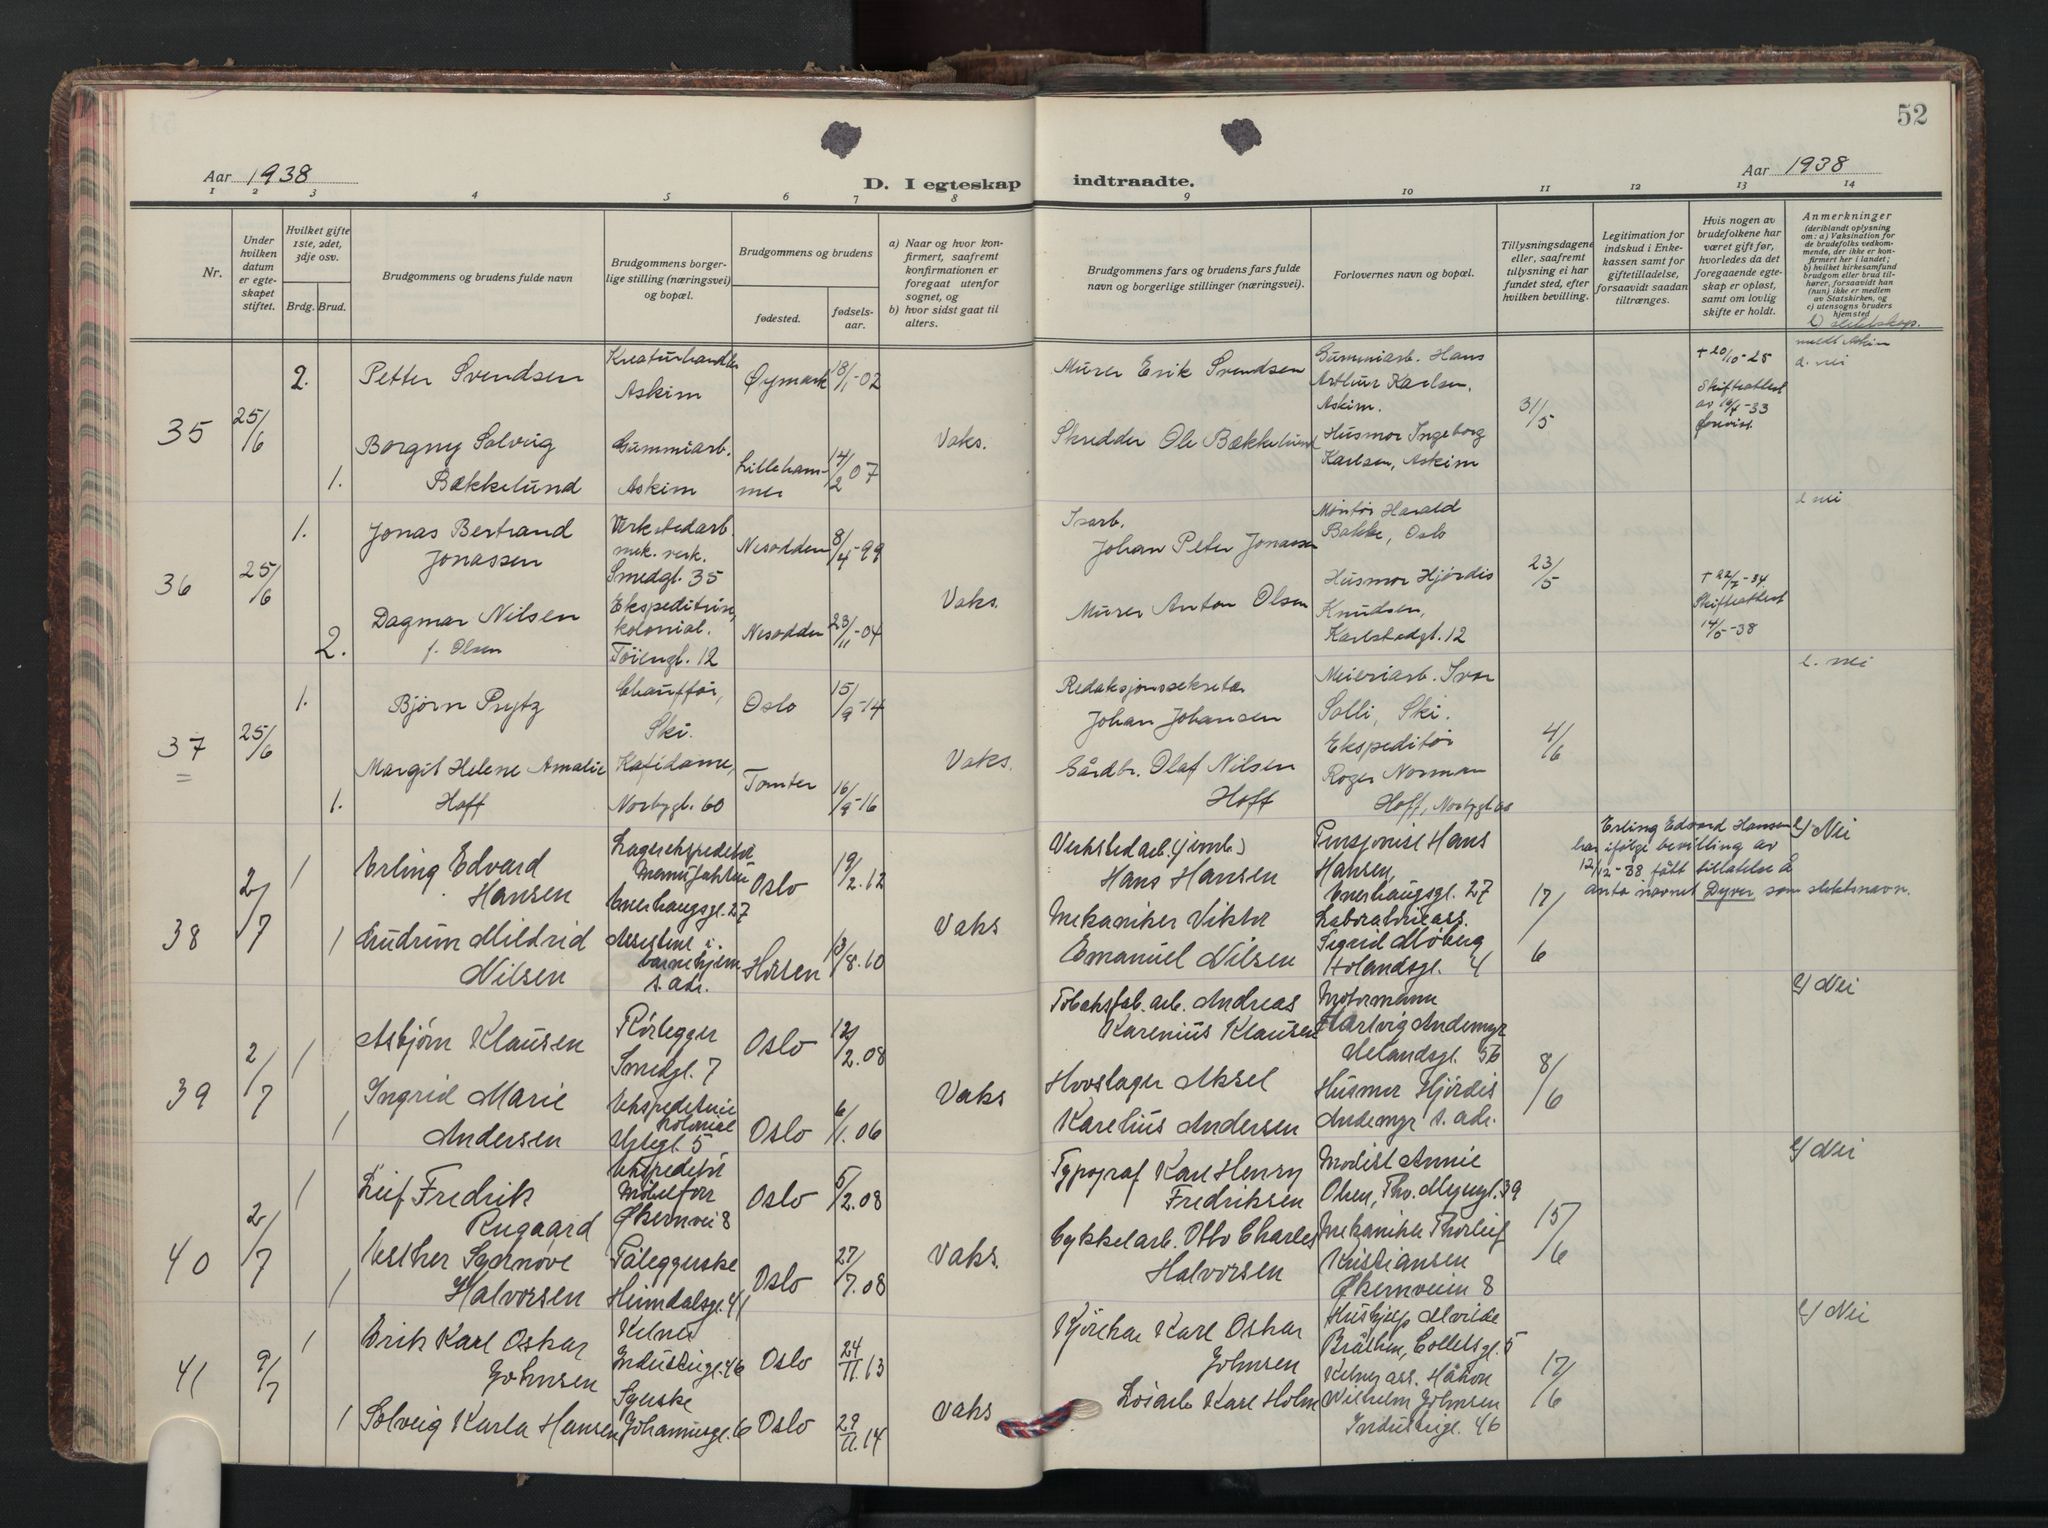 52
Aar 1938
D. I egteskap indtraadte.
Aar 1938
1 2 3 4 5 6 7 8 9 10 11 12 13 14
Nr.
Under hvilken datum er egteskapet stiftet.
Hvilket gifte 1ste, 2det, 3dje osv.
Brdg. Brud.
Brudgommens og brudens fulde navn
Brudgommens borgerlige stilling (næringsvei) og bopæl.
Brudgommens og brudens
fødested.
fødselsaar.
a) Naar og hvor konfirmert, saafremt konfirmationen er foregaat utenfor sognet, og
b) hvor sidst gaat til alters.
Brudgommens fars og brudens fars fulde navn og borgerlige stillinger (næringsvei).
Forlovernes navn og bopæl.
Tillysningsdagene eller, saafremt tillysning ei har fundet sted, efter hvilken bevilling.
Legitimation for indskud i Enkekassen samt for giftetilladelse, forsaavidt saadan tiltrænges.
Hvis nogen av brudefolkene har været gift før, hvorledes da det foregaaende egteskap er opløst, samt om lovlig skifte er holdt.
Anmerkninger
(deriblandt oplysning om: a) Vaksination for de brudefolks vedkommende, der ikke er konfirmert her i landet;
b) hvilket kirkesamfund brudgom eller brud tilhører, forsaavidt han (hun) ikke er medlem av Statskirken, og
c) utensogns bruders hjemsted
35
25/6
2.
Petter Svendsen
Kreaturhandler
Askim
Øymark
18/1-02
Murer Erik Svendsen
Gummiarb. Hans
Arthur Karlsen,
Askim.
31/5
+ 20/10-25
Skifteattest
meldt Askim
d. nei
1.
Borgny Solveig
Bækkelund
Gummiarb.
Askim
Lillehammer
14/2 07
Vaks.
Skredder Ole Bækkelund
Husmor Ingeborg
Karlsen, Askim
36
25/6
1.
Jonas Bertrand
Jonassen
Verkstedarb.
mek. verk.
Smedgt. 35
Nesodden
8/4-99
Isarb.
Johan Peter Jonassen
Montør Harald
Bakke, Oslo
23/5
l. nei
2.
Dagmar Nilsen
f. Olsen
Ekspeditrise,
kolonial.
Tøiengt. 12
Nesodden
23/11-04
Vaks.
Murer Anton Olsen
Husmor Hjørdis
Knudsen,
Karlstadgt. 12
+ 22/7-34
Skifteattest
14/5-38
37
25/6
1.
Bjørn Prytz
Chauffør,
Ski.
Oslo
15/9-14
Redaksjonssekretær
Johan Johansen
Meieriarb. Ivar
Solli, Ski.
4/6
l. nei
1.
Margit Helene Amalie
Hoff
Kafédame,
Norbygt. 60
Tomter
16/9-16
Vaks.
Gårdbr. Olaf Nilsen
Hoff
Ekspeditør
Roger Norman
Hoff, Norbygt. 60
38
2/7
1
Erling Edvard
Hansen
Lagerekspeditør
Manufaktur
Enerhaugsgt. 27
Oslo
19/2.12
Verkstedarb. (jernb.)
Hans Hansen
Pensjonist Hans
Hansen,
Enerhaugsgt. 27
17/6
Erling Edvard Hansen
har ifølge bevilling av
12/12-38 fått tillatelse å
anta navnet Dyver som slektsnavn.
l/ Nei
1
Gudrun Mildrid
Nilsen
Assistent i
barnehjem
s. adr.
13/8.10
Vaks
Mekaniker Viktor
Emanuel Nilsen
Laboratorieass.
Sigrid Moberg
Holandsgt. 4
39
2/7
1
Asbjørn Klausen
Rørlegger
Smedgt. 7
Oslo
12/2.08
Tobaksfab. arb. Andreas
Karenius Klausen
Motormann
Hartvig Andemyr
Melandsgt. 56
8/6
l/ Nei
1
Ingrid Marie
Andersen
Ekspeditrise
kolonial
Oslo
6/1.06
Vaks
Hovslager Aksel
Karelius Andersen
Husmor Hjørdis
Andemyr s. adr.
40
2/7
1
Leif Fredrik
Rugaard
Ekspeditør
Møbelforr
Økernvei 8
Oslo
5/2.08
Typograf Karl Henry
Fredriksen
Modist Annie
Olsen, Th. Myhgt. 39
15/6
l/ Nei
1
Esther Synnøve
Halvorsen
Påleggerske
Heimdalsgt. 41
Oslo
27/7.08
Vaks.
Cykkelarb. Otto Charles
Halvorsen
Mekaniker Thorleif
Kristiansen
Økernveien 8
41
9/7
1
Erik Karl Oskar
Johnsen
Kelner
Industrigt. 46
Oslo
24/11.13
Kjørekar Karl Oskar
Johnsen
Hushjelp Alvilde
Bråthen, Colletsgt. 5
17/6
l/ Nei
1
Solveig Karla Hansen
Syerske
Johannesgt. 6
Oslo
29/11.14
Vaks
Løsarb Karl Holm
Kelnerass. Håkon
Wilhelm Johnsen
Industrigt. 46